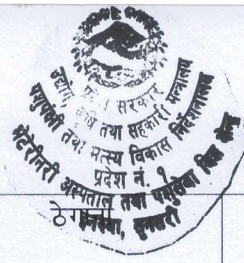 प्रदेश सरकार
उद्योग, कृषि तथा सहकारी मन्त्रालय
पशुपंक्षी तथा मत्स्य विकास निर्देशनालय
प्रदेश नं. १
भेटेरीनरी अस्पताल तथा पशुसेवा विज्ञ केन्द्र
इनरुवा, सुनसरी
ठेगाना